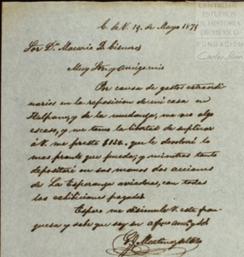 C. de V. 19, de Mayo 1875
Sor Dn Macario D. Cisneros
Muy Sor y amigo mio
Por causa de gastos extraordi
narios en la reposicion de mi casa en
y de la mudanza, me veo algo
escaso, y me tomo la libertad de suplicar
á V. me preste $150. que le devolveré lo
mas pronto que pueda; y mientras tanto
depositaré en sus manos dos acciones
de La Esperanza aviadora, con todas
las exhibiciones pagadas.
Espero me disimule V. esta fran
queza y sabe que soy su afmo amigo
CENTRO DE
ESTUDIOS
DE HISTORIA
DE MÉXICO
FUNDACIÓN
Carlos Slim